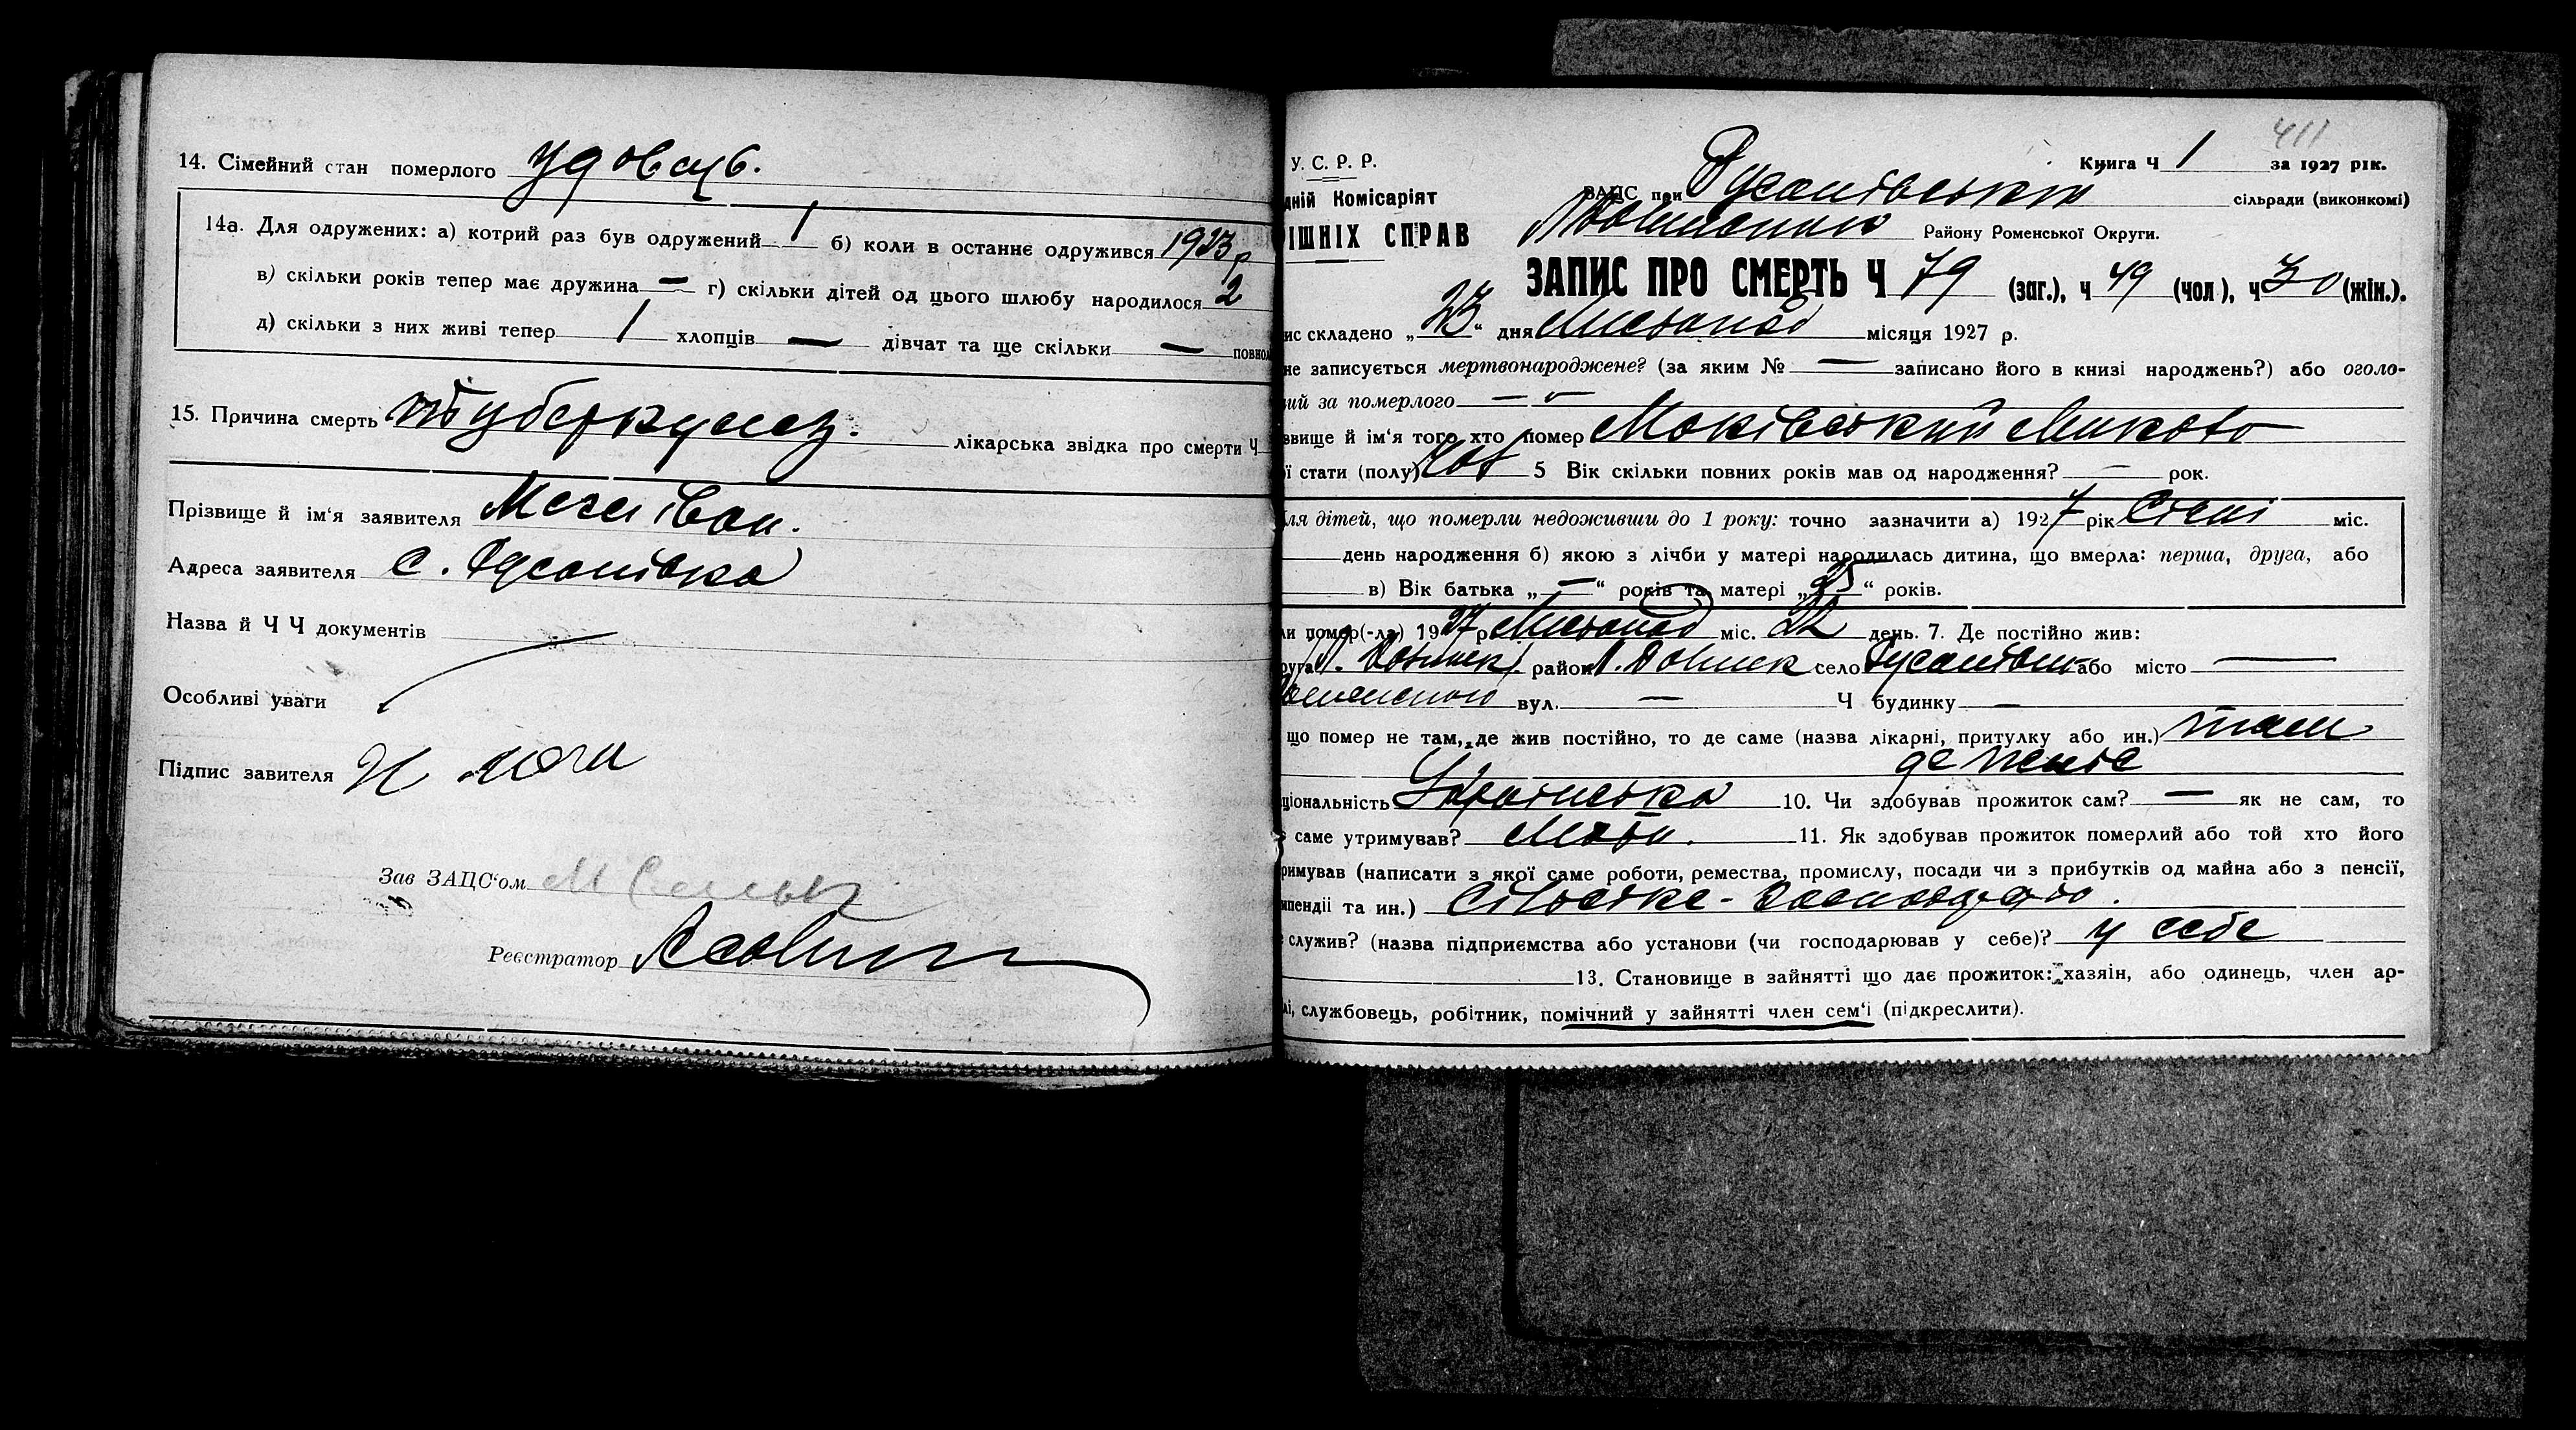 14. Сімейний стан померлого удовець.
14а. Для одружених: а) котрий раз був одружений 1 б) коли в останнє одружився 1923 р
в) скільки років тепер має дружина — г) скільки дітей од цього шлюбу народилося 2
д) скільки з них живі тепер 1 хлопців — дівчат та ще скільки — повнол
15. Причина смерть туберкульоз. лікарська звідка про смерти Ч
Прізвище й ім'я заявителя Іван.
Адреса заявителя с. Русанівка
Назва й Ч Ч документів
Особливі уваги
Підпис завителя
Зав ЗАЦС'ом
Реєстратор
411
У. С. Р. Р. Книга Ч 1 за 1927 рік.
дній Комісаріят ЗАЦС при Русанівській сільради (виконкомі)
ІШНІХ СПРАВ Району Роменської Округи.
ЗАПИС ПРО СМЕРТЬ Ч 79 (заг.), ч 49 (чол), ч 30 (жін.).
ис складено „23“ дня Листопад місяця 1927 р.
не записується мертвонароджене? (за яким № — записано його в книзі народжень?) або оголо-
ий за померлого —
звище й ім'я того хто помер Маківський Микола
ї стати (полу) Чол 5 Вік скільки повних років мав од народження? — рок.
ля дітей, що померли недоживши до 1 року: точно зазначити а) 1927 рік Січні міс.
день народження б) якою з лічби у матері народилась дитина, що вмерла: перша, друга, або
в) Вік батька „—“ років та матері „25“ років.
ли помер(-ла) 1927 р Листопад міс. 22 день. 7. Де постійно жив:
руга район село Русанівка або місто —
Роменського вул. — Ч будинку —
що помер не там, де жив постійно, то де саме (назва лікарні, притулку або ин.) там
де жив
ціональність Українська 10. Чи здобував прожиток сам? — як не сам, то
саме утримував? Мати. 11. Як здобував прожиток померлий або той хто його
римував (написати з якої саме роботи, ремества, промислу, посади чи з прибутків од майна або з пенсії,
ипендії та ин.) Сільське-господарство.
служив? (назва підприємства або установи (чи господарював у себе)? у себе
13. Становище в зайнятті що дає прожиток: хазяін, або одинець, член ар-
лі, службовець, робітник, помічний у зайнятті член сем'і (підкреслити).